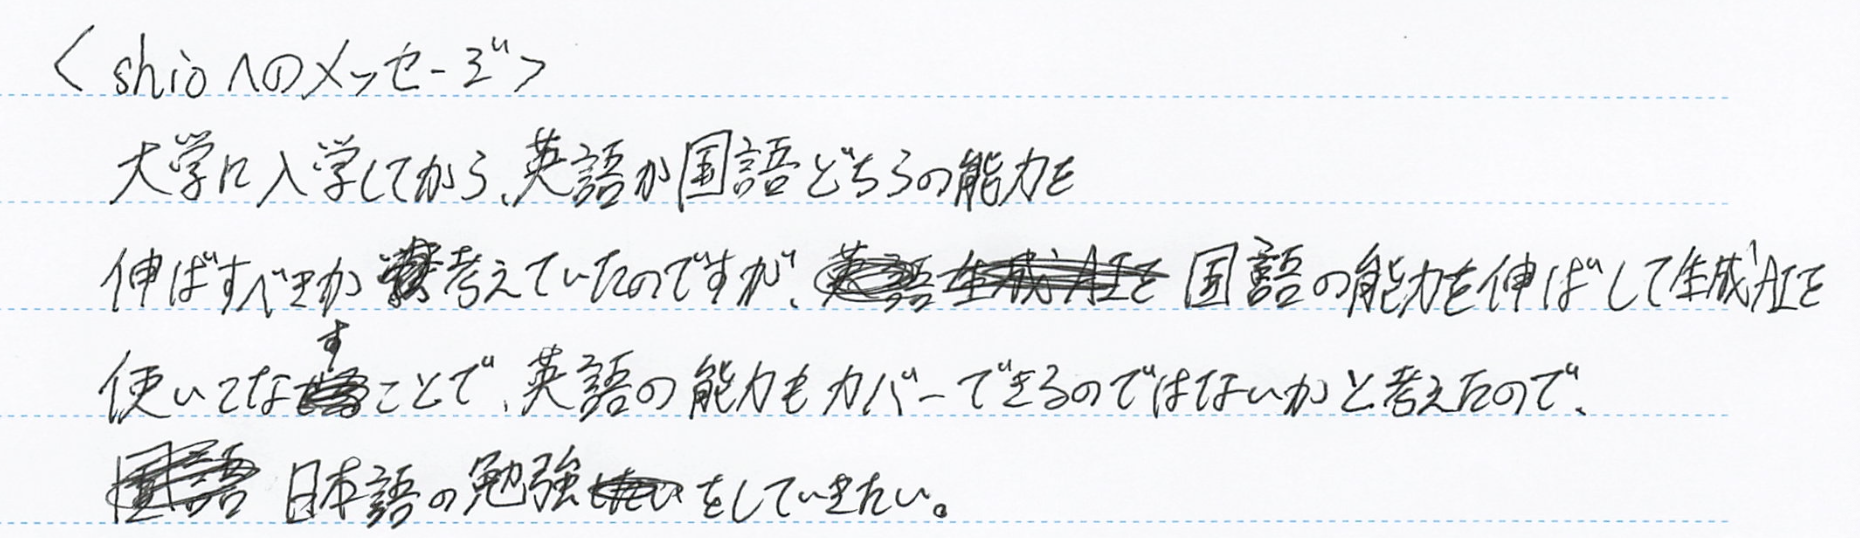 <shioへのメッセージ>
大学に入学してから、英語か国語どちらの能力を
伸ばすべきか考えていたのですが、国語の能力を伸ばして生成AIを
使いこなすことで、英語の能力もカバーできるのではないかと考えたので、
日本語の勉強をしていきたい。